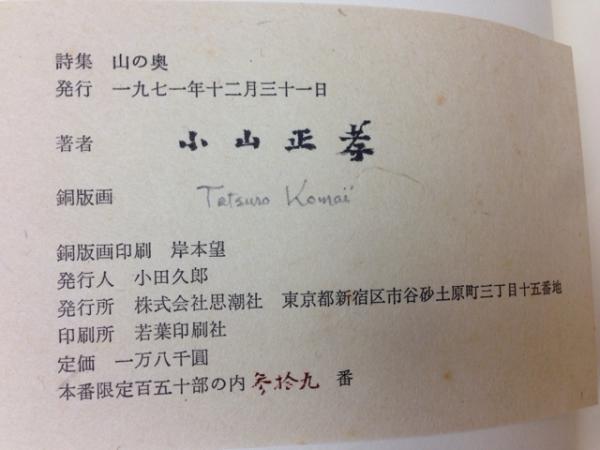 詩集　山の奥
発行　一九七一年十二月三十一日
著者　小山正孝
銅版画　Tetsuro Komaï
銅版画印刷　岸本望
発行人　小田久郎
発行所　株式会社思潮社　東京都新宿区市谷砂土原町三丁目十五番地
印刷所　若葉印刷社
定価　一万八千圓
本番限定百五十部の内　参拾九　番